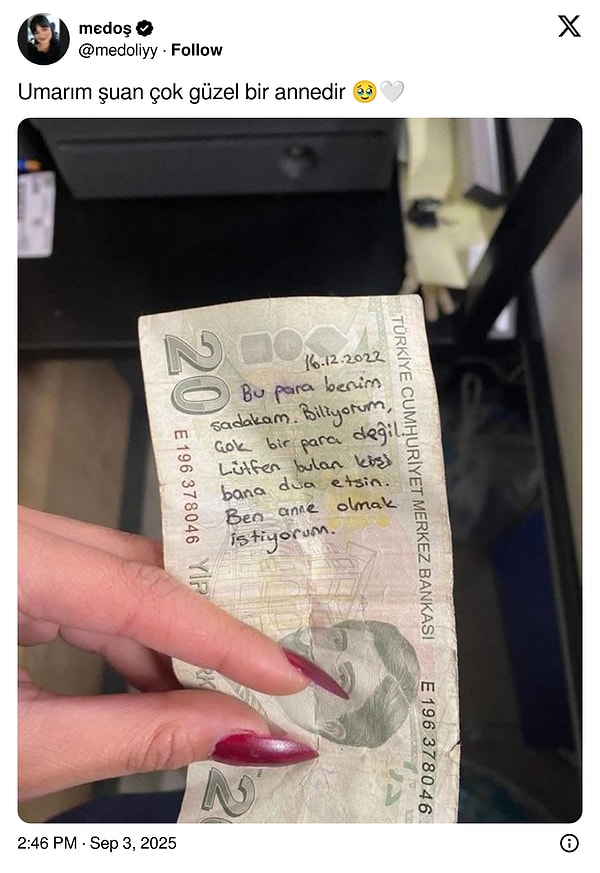 mєdoş
@medoliyy · Follow
Umarım şuan çok güzel bir annedir 🥹🤍
20
TÜRKİYE CUMHURİYET MERKEZ BANKASI
16.12.2022
Bu para benim
sadakam. Biliyorum,
çok bir para değil.
Lütfen bulan kişi
bana dua etsin.
Ben anne olmak
istiyorum.
E196378046
E196378046
2:46 PM · Sep 3, 2025